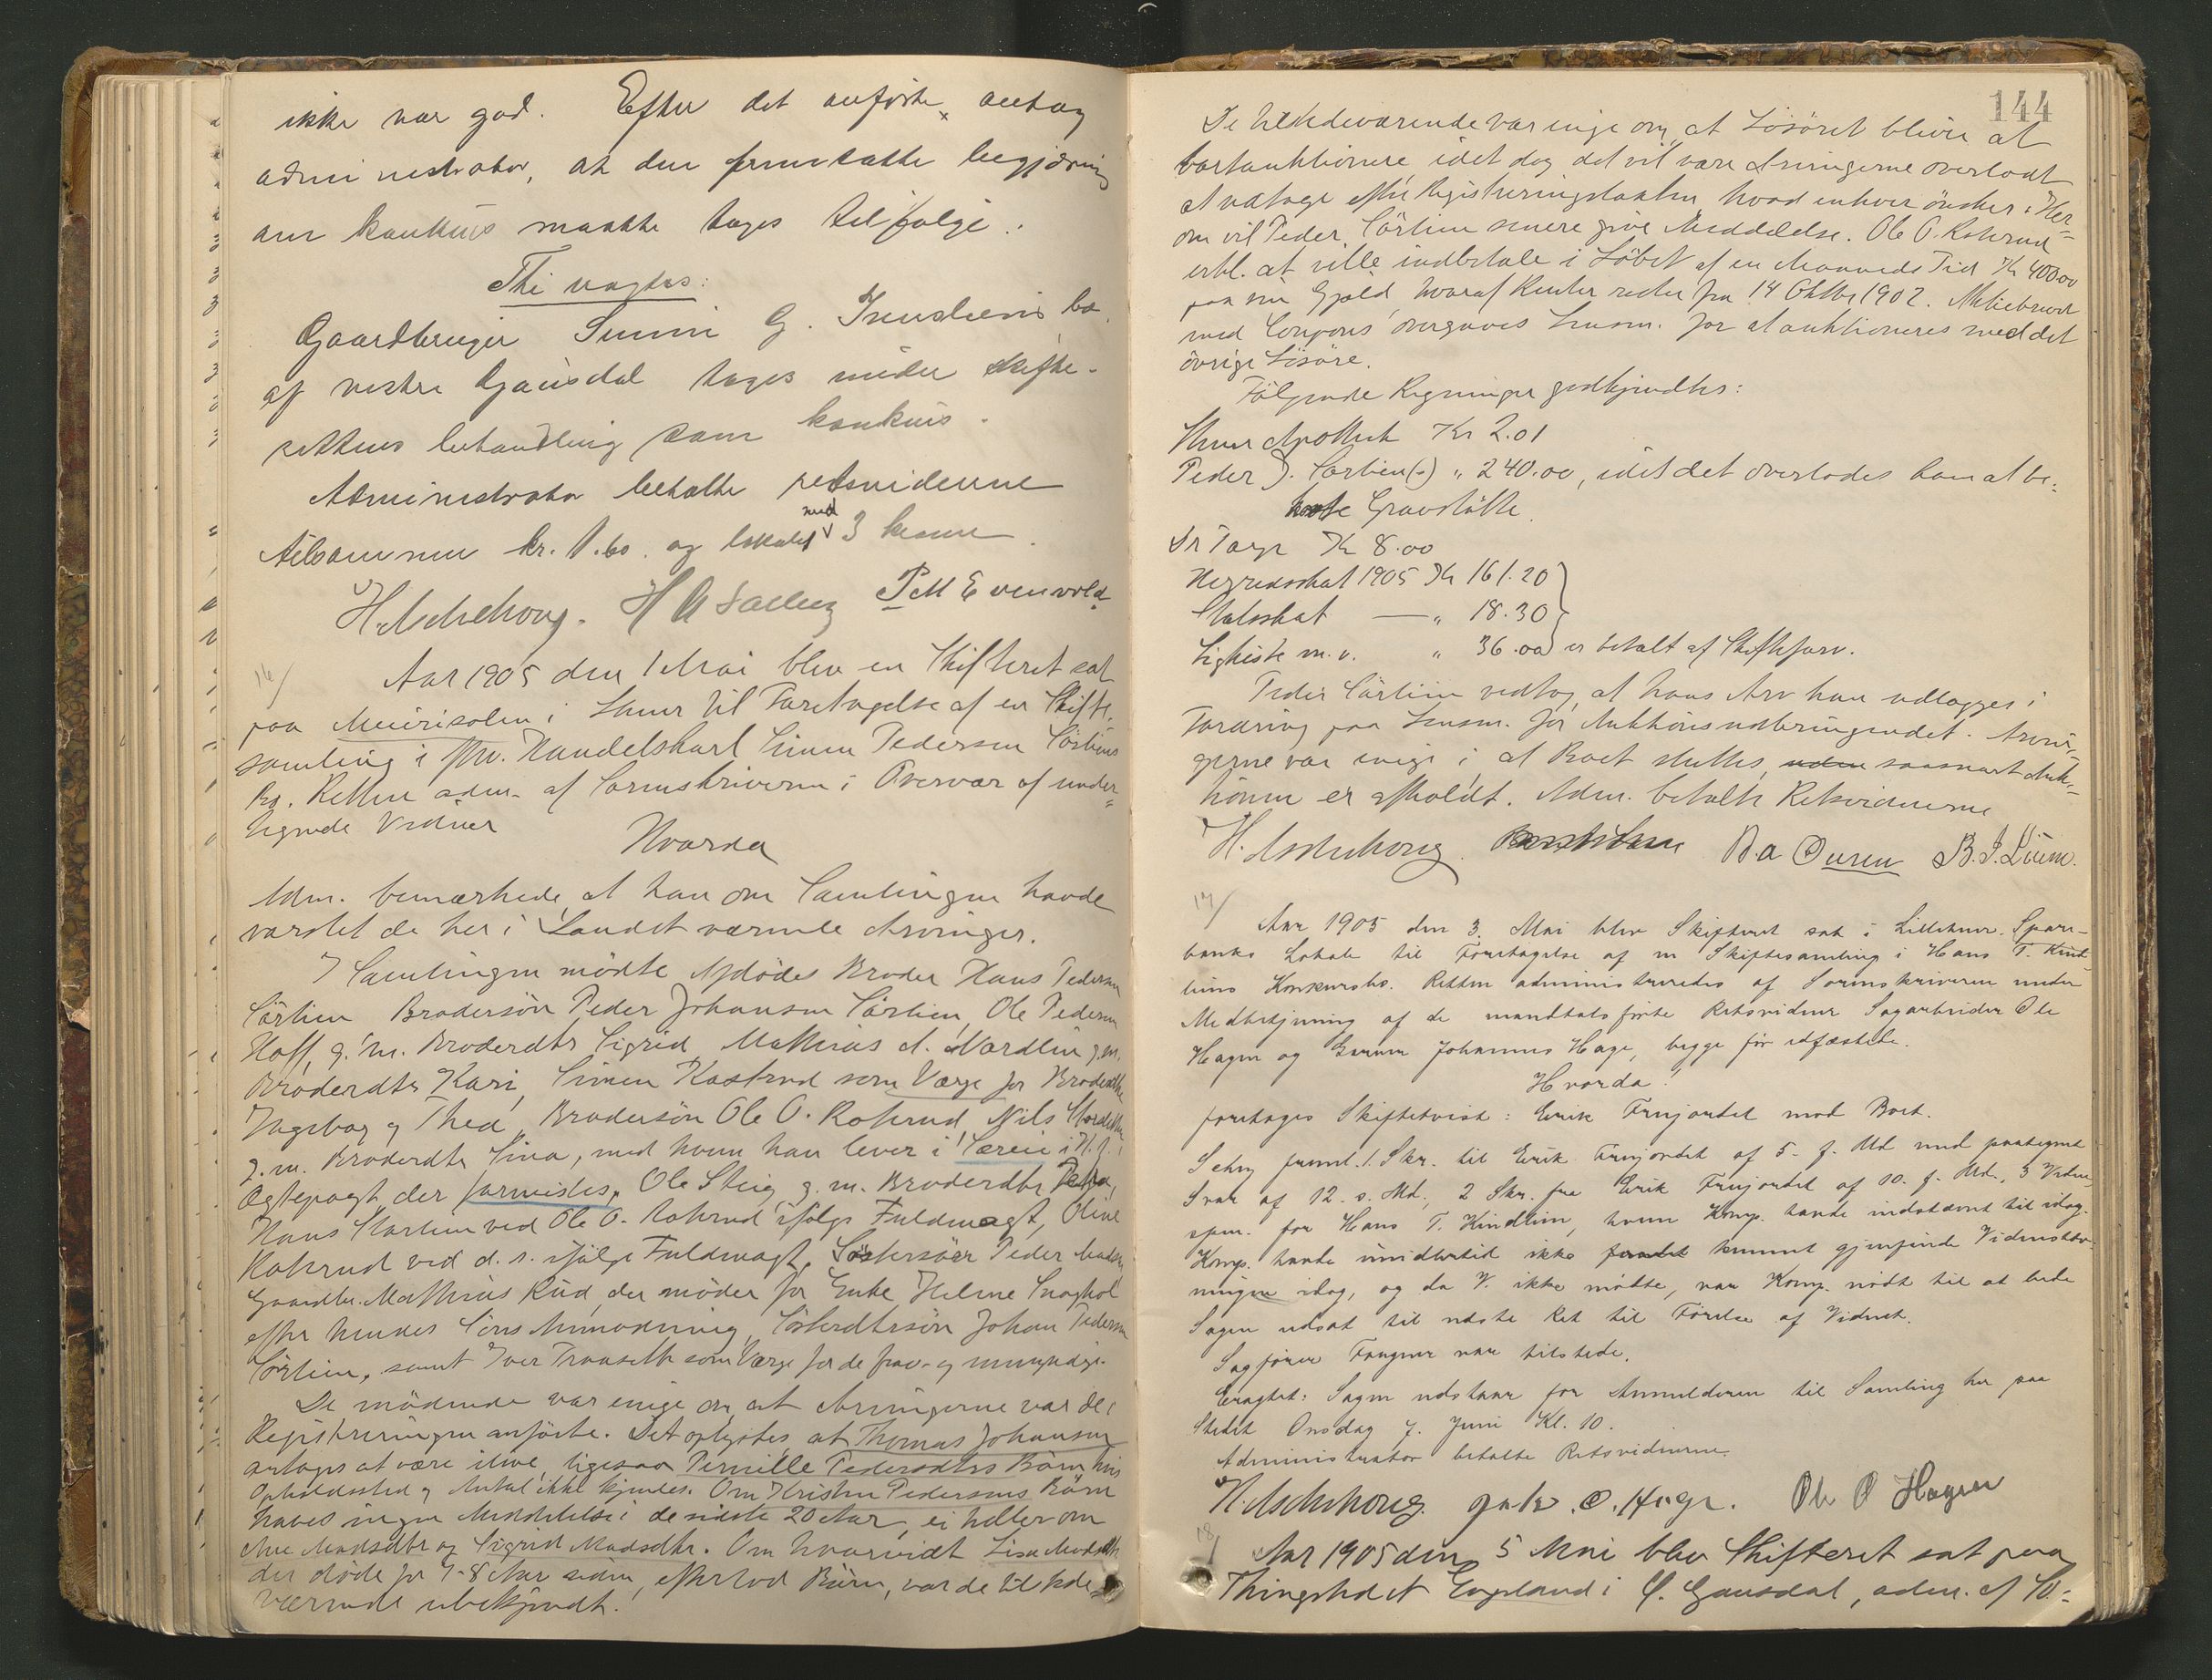 ikke var god. Efter det anførte antog
administrator, at den fremsatte begjæring
om konkurs maatte tages tilfølge.
Thi vagtes:
Gaardbruger Simen G. bo
af vestre Gausdal tages under skifte-
rettens behandling som konkurs.
Administrator betalte retsvidnerne
tilsammen kr. 1.60. og lokalet med 3 kroner.
H. Aschehoug. P M Evenvold
16/
Aar 1905 den 1 Mai blev en Skifteret sat
paa Meierisalen i til Foretagelse af en Skifte-
samling i Handelskarl Simen Pedersen Sørliens
Bo. Retten adm. af Sorenskriveren i Overvær af under-
tegnede Vidner
Hvorda
Adm. bemærkede, at han om Samlingen havde
varslet de her i Landet værende Arvinger.
I Samlingen mødte Afdødes Broder Hans Pedersen
Sørlien Brodersøn Peder Johansen Sørlien, Ole Pedersen
Hoff, g. m. Broderdtr Sigrid Mathias A. Nordlien g. m.
Broderdtr Kari, Simen Kastrud som Værge for Broderdtr
Ingebor g Thea, Brodersøn Ole O. Rohrud, Nils
g. m. Broderdtr Sina, med hvem han lever i Særeie i H. t.
Ægtepagt, der fremvistes, Ole Steig g. m. Broderdtr Petra,
Hans Sørlien ved Ole O. Rohrud ifølge Fuldmagt, Oline
Rohrud ved d. s. ifølge Fuldmagt, Søstersøn Peder Madsen,
Gaardbr. Mathias Rud, der møder for Enke Helene
efter hendes Søns Anmodning, Søsterdtrsøn Johan Pedersen
Sørlien, samt Iver som Værge for de frav- og umyndige.
De mødende var enige om, at Arvingerne var de i
Registreringen anførte. Det oplystes, at Thomas Johansen
antages at være ilive, ligesaa Pernille Pedersdtrs Børn hvis
Opholdssted og Antal ikke kjendes. Om Kristen Pedersens Børn
haves ingen Meddelelse i de sidste 20 Aar, ei heller om
Ane Madsdtr og Sigrid Madsdtr. Om hvorvidt Lisa Madsdtr
der døde for 7-8 Aar siden, efterlod Børn, var de tilstede-
værende ubekjendt.
144
De tilstedeværende var enige om, at Løsøret bliver at
bortauktionere, idet dog det vil være Arvingerne overladt
at udtage efter Registreringstaksten, hvad enhver ønsker. Her-
om vil Peder Sørlien senere give Meddelelse. Ole O. Rohrud
erkl. at ville indbetale i Løbet af en Maaneds Tid Kr 400.00
paa sin Gjæld, hvoraf Renter rester fra 14 Oktbr 1902. Aktiebrevet
med Coupons overgaves Lensm. for at auktioneres med det
øvrige Løsøre.
Følgende Regninger godkjendtes:
Apothek Kr 2.01
Peder J. Sørlien(s) " 240.00, idet det overlodes ham at be-
koste Gravstøtte.
Dr Kr 8.00
Herredsskat 1905 Kr 161.20
Statsskat — " 18.30
Ligkiste m. v. " 36.00 er betalt af Skifteforv.
Peder Sørlien vedtog, at hans Arv kan udlægges i
Fordring paa Lensm. for Auktionsudbringendet. Arvin-
gerne var enige i, at Boet sluttes, uden saasnart Auk-
tionen er afholdt. Adm. betalte Retsvidnerne
H. Aschehoug. B. a Ouren B. J. Liiem.
17/
Aar 1905 den 3. Mai blev Skifteret sat i Lillehmr. Spare-
banks Lokale til Foretagelse af en Skiftesamling i Hans T. Kind-
liens Konkursbo. Retten administreredes af Sorenskriveren under
Medbetjening af de mandtalsførte Retsvidner Sagarbeider Ole
Hagen og Johannes Hage, begge før edfæstede.
Hvorda!
foretoges Skiftetvist: Erik Frujordet mod Boet.
Selvig freml. 1. Skr. til Erik Frujordet af 5. f. Md. med paategnet
Svar af 12. s. Md., 2 Skr. fra Erik Frujordet af 10. f. Md., 3 Vidne-
spm. for Hans T. Kindlien, hvem Komp. havde indstævnt til idag.
Komp. havde imidlertid ikke fundet kunnet gjenfinde Vidnestæv-
ningen idag, og da V. ikke mødte, var Komp. nødt til at bede
Sagen udsat til næste Ret til Førelse af Vidnet.
Sagfører Fougner var tilstede.
Eragtet: Sagen udstaar for Anmelderen til Samling her paa
Stedet Onsdag 7. Juni Kl. 10.
Administrator betalte Retsvidnerne.
H. Aschehoug. Ole O Hagen
18/
Aar 1905 den 5 Mai blev Skifteret sat paa
Thingstedet Engeland i Ø. Gausdal, adm. af So-